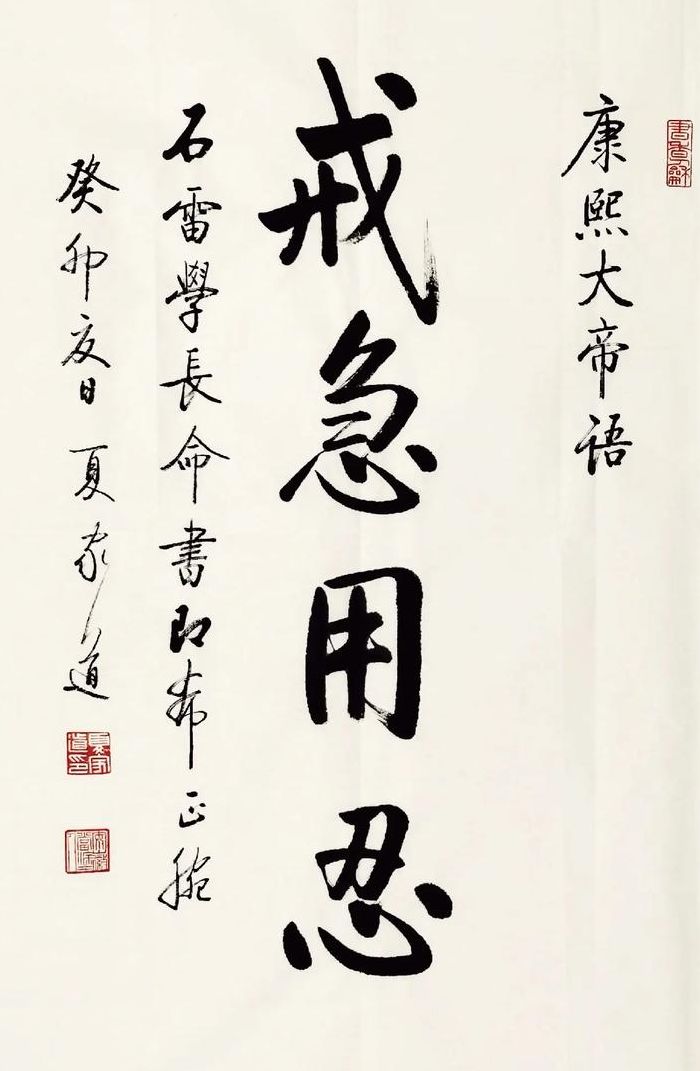 康熙大帝语
戒急用忍
石雷學長命書即希正腕
癸卯夏日 夏家道
夏家道印